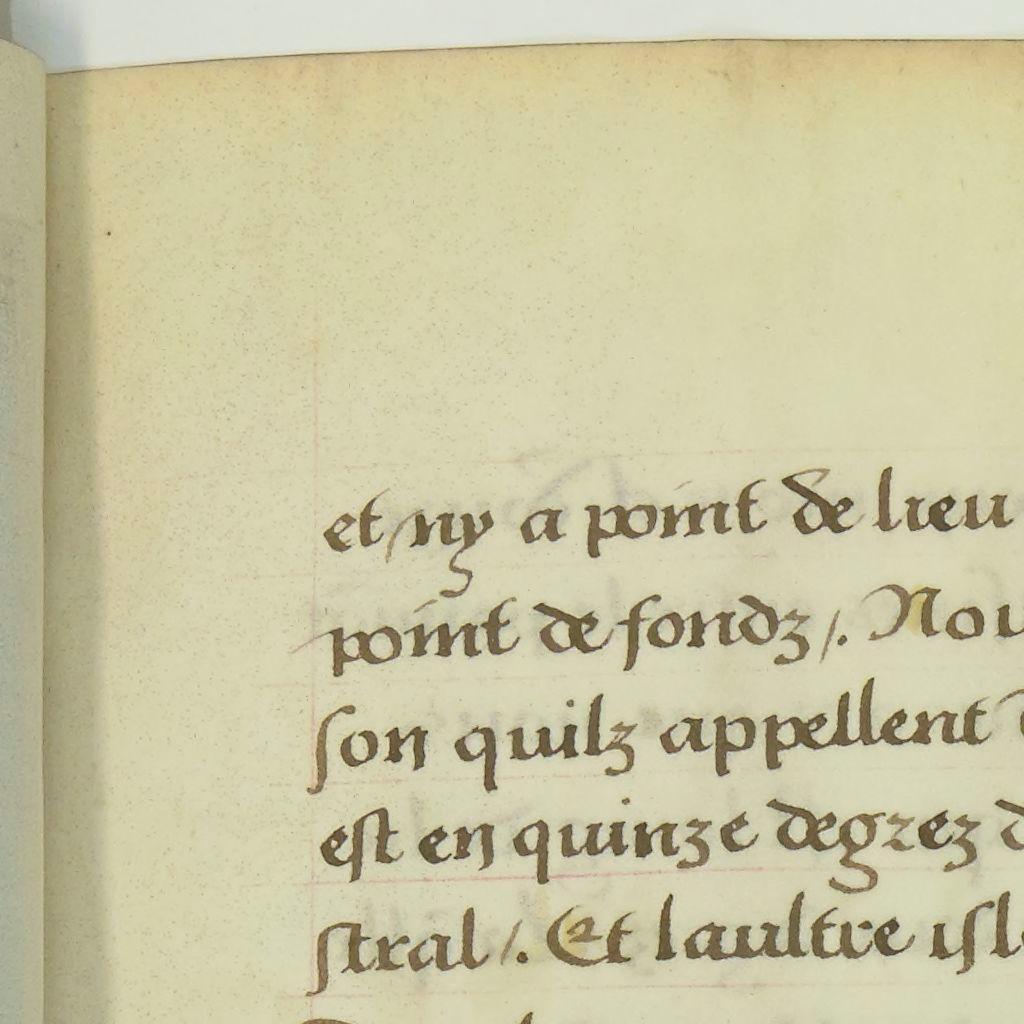 et ny a point de lieu
point de fondz /. Nou
son quilz appellent
est en quinze degrez d
stral /. Et laultre isl